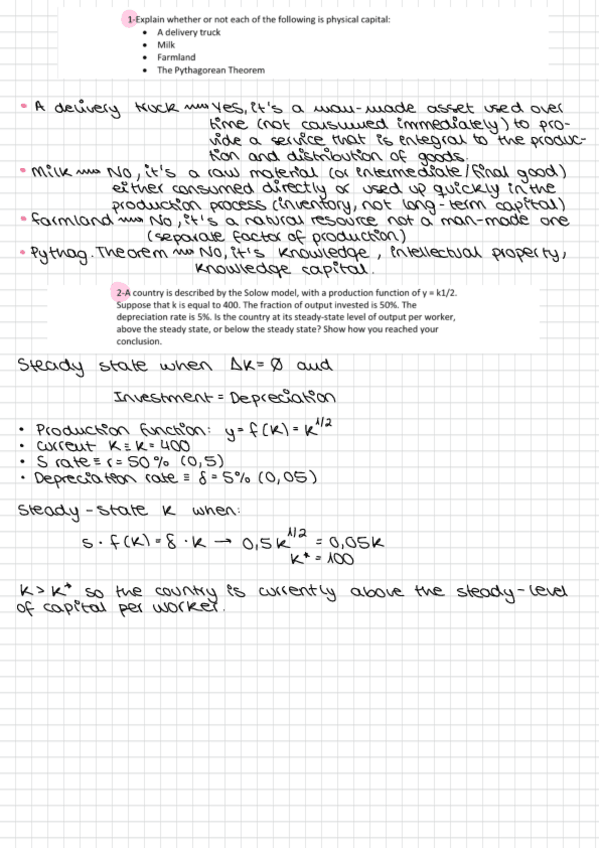 1-Explain whether or not each of the following is physical capital:
• A delivery truck
• Milk
• Farmland
• The Pythagorean Theorem
• A delivery truck ~~ Yes, it's a man-made asset used over
time (not consumed immediately) to pro-
vide a service that is integral to the produc-
tion and distribution of goods.
• Milk ~~ No, it's a raw material (or intermediate/final good)
either consumed directly or used up quickly in the
production process (inventory, not long-term capital)
• Farmland ~~ No, it's a natural resource not a man-made one
(separate factor of production)
• Pythag. Theorem ~~ No, it's knowledge, intellectual property,
knowledge capital.
2-A country is described by the Solow model, with a production function of y = k1/2.
Suppose that k is equal to 400. The fraction of output invested is 50%. The
depreciation rate is 5%. Is the country at its steady-state level of output per worker,
above the steady state, or below the steady state? Show how you reached your
conclusion.
Steady state when Δk = Ø and
Investment = Depreciation
• Production function: y = f(k) = k^1/2
• Current K ≡ k = 400
• S rate ≡ r = 50% (0,5)
• Depreciation rate ≡ δ = 5% (0,05)
Steady-State k when:
s · f(k) = δ · k → 0,5k^1/2 = 0,05k
k* = 100
k > k* so the country is currently above the steady-level
of capital per worker.